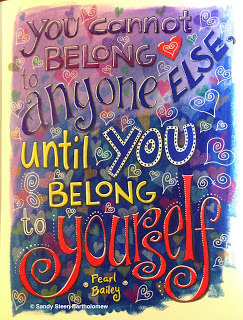 you cannot
BELONG
to anyone ELSE,
until YOU
BELONG
to yourself
Pearl
Bailey
© Sandy Steen Bartholomew